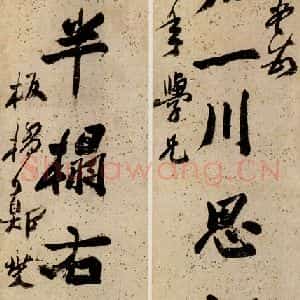 一川思
年學兄
半榻右
板橋鄭燮
Shufawang.CN